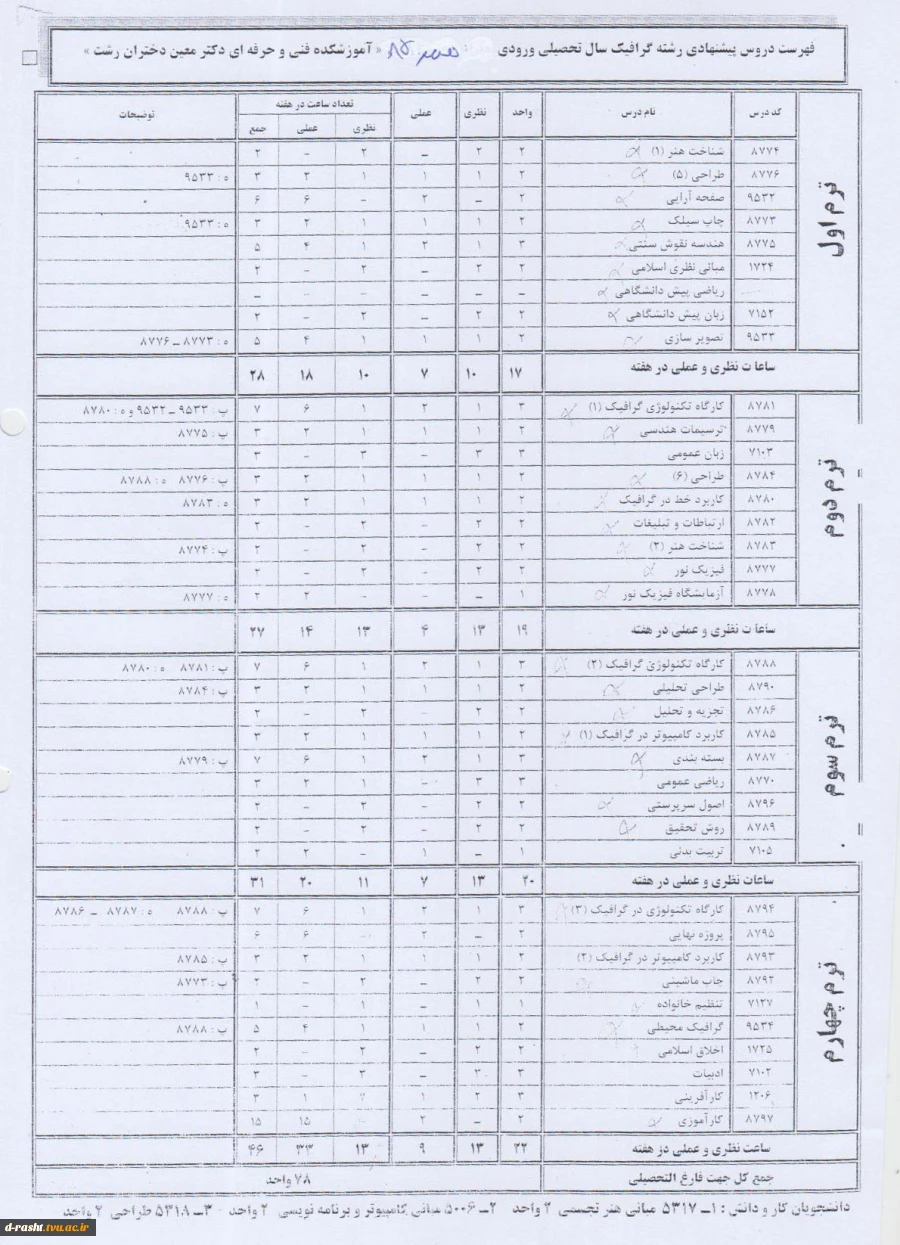 فهرست دروس پیشنهادی رشته گرافیک سال تحصیلی ورودی « آموزشکده فنی و حرفه ای دکتر معین دختران رشت »
ترم اول
کد درس نام درس واحد نظری عملی تعداد ساعت در هفته توضیحات
نظری عملی جمع
۸۷۷۴ شناخت هنر (۱) ۲ ۲ – ۲ – ۲
۸۷۷۶ طراحی (۵) ۲ ۱ ۱ ۱ ۲ ۳ ه : ۹۵۳۳
۹۵۳۲ صفحه آرایی ۲ – ۲ – ۶ ۶
۸۷۷۳ چاپ سیلک ۲ ۱ ۱ ۱ ۲ ۳ ه : ۹۵۳۳
۸۷۷۵ هندسه نقوش سنتی ۳ ۱ ۲ ۱ ۴ ۵
۱۷۲۴ مبانی نظری اسلامی ۲ ۲ – ۲ – ۲
ریاضی پیش دانشگاهی – – – – – –
۷۱۵۲ زبان پیش دانشگاهی ۲ ۲ – ۲ – ۲
۹۵۳۳ تصویر سازی ۲ ۱ ۱ ۱ ۴ ۵ ه : ۸۷۷۳ – ۸۷۷۶
ساعات نظری و عملی در هفته ۱۷ ۱۰ ۷ ۱۰ ۱۸ ۲۸
ترم دوم
۸۷۸۱ کارگاه تکنولوژی گرافیک (۱) ۳ ۱ ۲ ۱ ۶ ۷ پ : ۹۵۳۳ – ۹۵۳۲ و ه : ۸۷۸۰
۸۷۷۹ ترسیمات هندسی ۲ ۱ ۱ ۱ ۲ ۳ پ : ۸۷۷۵
۷۱۰۳ زبان عمومی ۳ ۳ – ۳ – ۳
۸۷۸۴ طراحی (۶) ۲ ۱ ۱ ۱ ۲ ۳ پ : ۸۷۷۶ ه : ۸۷۸۸
۸۷۸۰ کاربرد خط در گرافیک ۲ ۱ ۱ ۱ ۲ ۳ ه : ۸۷۸۳
۸۷۸۲ ارتباطات و تبلیغات ۲ ۲ – ۲ – ۲
۸۷۸۳ شناخت هنر (۲) ۲ ۲ – ۲ – ۲ پ : ۸۷۷۴
۸۷۷۷ فیزیک نور ۲ ۲ – ۲ – ۲
۸۷۷۸ آزمایشگاه فیزیک نور ۱ – – – ۲ ۲ ه : ۸۷۷۷
ساعات نظری و عملی در هفته ۱۹ ۱۳ ۴ ۱۳ ۱۴ ۲۷
ترم سوم
۸۷۸۸ کارگاه تکنولوژی گرافیک (۲) ۳ ۱ ۲ ۱ ۶ ۷ پ : ۸۷۸۱ ه : ۸۷۸۰
۸۷۹۰ طراحی تحلیلی ۲ ۱ ۱ ۱ ۲ ۳ پ : ۸۷۸۴
۸۷۸۶ تجزیه و تحلیل ۲ ۲ – ۲ – ۲
۸۷۸۵ کاربرد کامپیوتر در گرافیک (۱) ۲ ۱ ۱ ۱ ۲ ۳
۸۷۸۷ بسته بندی ۳ ۱ ۲ ۱ ۶ ۷ پ : ۸۷۷۹
۸۷۷۰ ریاضی عمومی ۳ ۳ – ۱ ۲ ۳
۸۷۹۶ اصول سرپرستی ۲ ۲ – ۲ – ۲
۸۷۸۹ روش تحقیق ۲ ۲ – ۲ – ۲
۷۱۰۵ تربیت بدنی ۱ – ۱ – ۲ ۲
ساعات نظری و عملی در هفته ۲۰ ۱۳ ۷ ۱۱ ۲۰ ۳۱
ترم چهارم
۸۷۹۴ کارگاه تکنولوژی در گرافیک (۳) ۳ ۱ ۲ ۱ ۶ ۷ پ : ۸۷۸۸ ه : ۸۷۸۷ – ۸۷۸۶
۸۷۹۵ پروژه نهایی ۲ – ۲ – ۶ ۶
۸۷۹۳ کاربرد کامپیوتر در گرافیک (۲) ۲ ۱ ۱ ۱ ۲ ۳ پ : ۸۷۸۵
۸۷۹۲ چاپ ماشینی ۲ ۲ – ۲ – ۲ پ : ۸۷۷۳
۷۱۲۷ تنظیم خانواده ۱ ۱ – ۱ – ۱
۹۵۳۴ گرافیک محیطی ۲ ۱ ۱ ۱ ۴ ۵ پ : ۸۷۸۸
۱۷۲۵ اخلاق اسلامی ۲ ۲ – ۲ – ۲
۷۱۰۲ ادبیات ۳ ۳ – ۳ – ۳
۱۲۰۶ کارآفرینی ۳ ۲ ۱ ۲ ۱ ۳
۸۷۹۷ کارآموزی ۲ – ۲ ۱۵ ۱۵
ساعت نظری و عملی در هفته ۲۲ ۱۳ ۹ ۱۳ ۳۳ ۴۶
جمع کل جهت فارغ التحصیلی ۷۸ واحد
دانشجویان کار و دانش : ۱ـ ۵۳۱۷ مبانی هنر تجسمی ۲ واحد ۲ـ ۵۰۰۶ مبانی کامپیوتر و برنامه نویسی ۲ واحد ۳ـ ۵۳۱۸ طراحی ۲ واحد
d-rasht.tvu.ac.ir